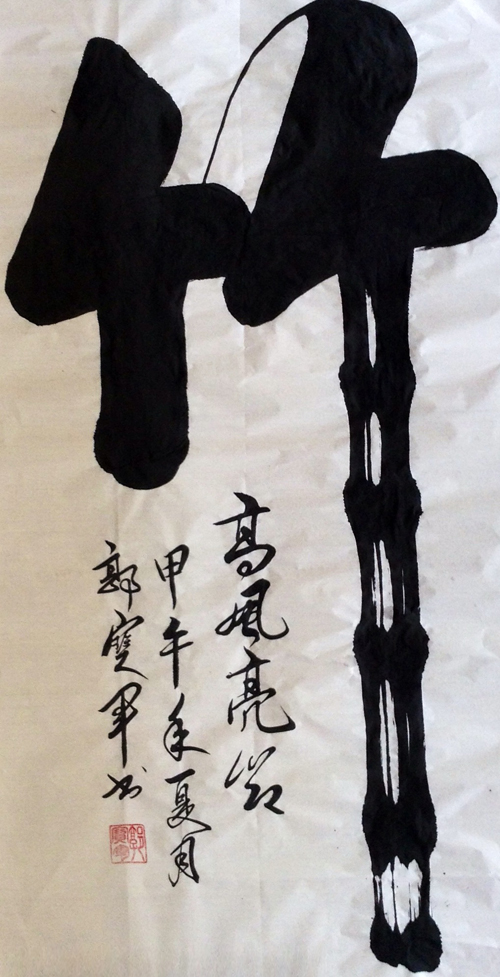 竹
高风亮节
甲午年夏月
郭宝军书